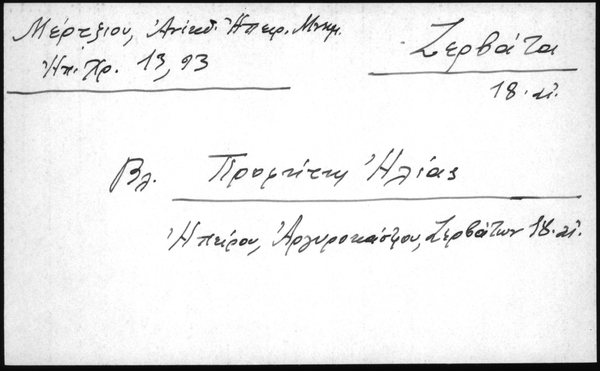 Μέρτζιου, Ἀνέκδ. Ἠπειρ. Μνημ.
Ἠπ. Χρ. 13, 93
Ζερβάτα
18. αἰ.
Βλ. Προφήτης Ἠλίας
Ἠπείρου, Ἀργυροκάστρου, Ζερβάτων 18. αἰ.